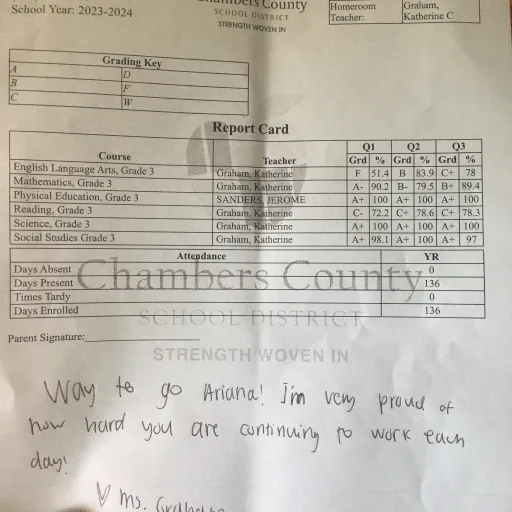 School Year: 2023-2024
Chambers County
SCHOOL DISTRICT
STRENGTH WOVEN IN
Homeroom Teacher: Graham, Katherine C
Grading Key
A D
B F
C W
Report Card
Q1 Q2 Q3
Course Teacher Grd % Grd % Grd %
English Language Arts, Grade 3 Graham, Katherine F 51.4 B 83.9 C+ 78
Mathematics, Grade 3 Graham, Katherine A- 90.2 B- 79.5 B+ 89.4
Physical Education, Grade 3 SANDERS, JEROME A+ 100 A+ 100 A+ 100
Reading, Grade 3 Graham, Katherine C- 72.2 C+ 78.6 C+ 78.3
Science, Grade 3 Graham, Katherine A+ 100 A+ 100 A+ 100
Social Studies Grade 3 Graham, Katherine A+ 98.1 A+ 100 A+ 97
Attendance YR
Days Absent 0
Days Present 136
Times Tardy 0
Days Enrolled 136
Chambers County
SCHOOL DISTRICT
STRENGTH WOVEN IN
Parent Signature:
Way to go Ariana! I'm very proud of
how hard you are continuing to work each
day!
♡ Ms. Graham